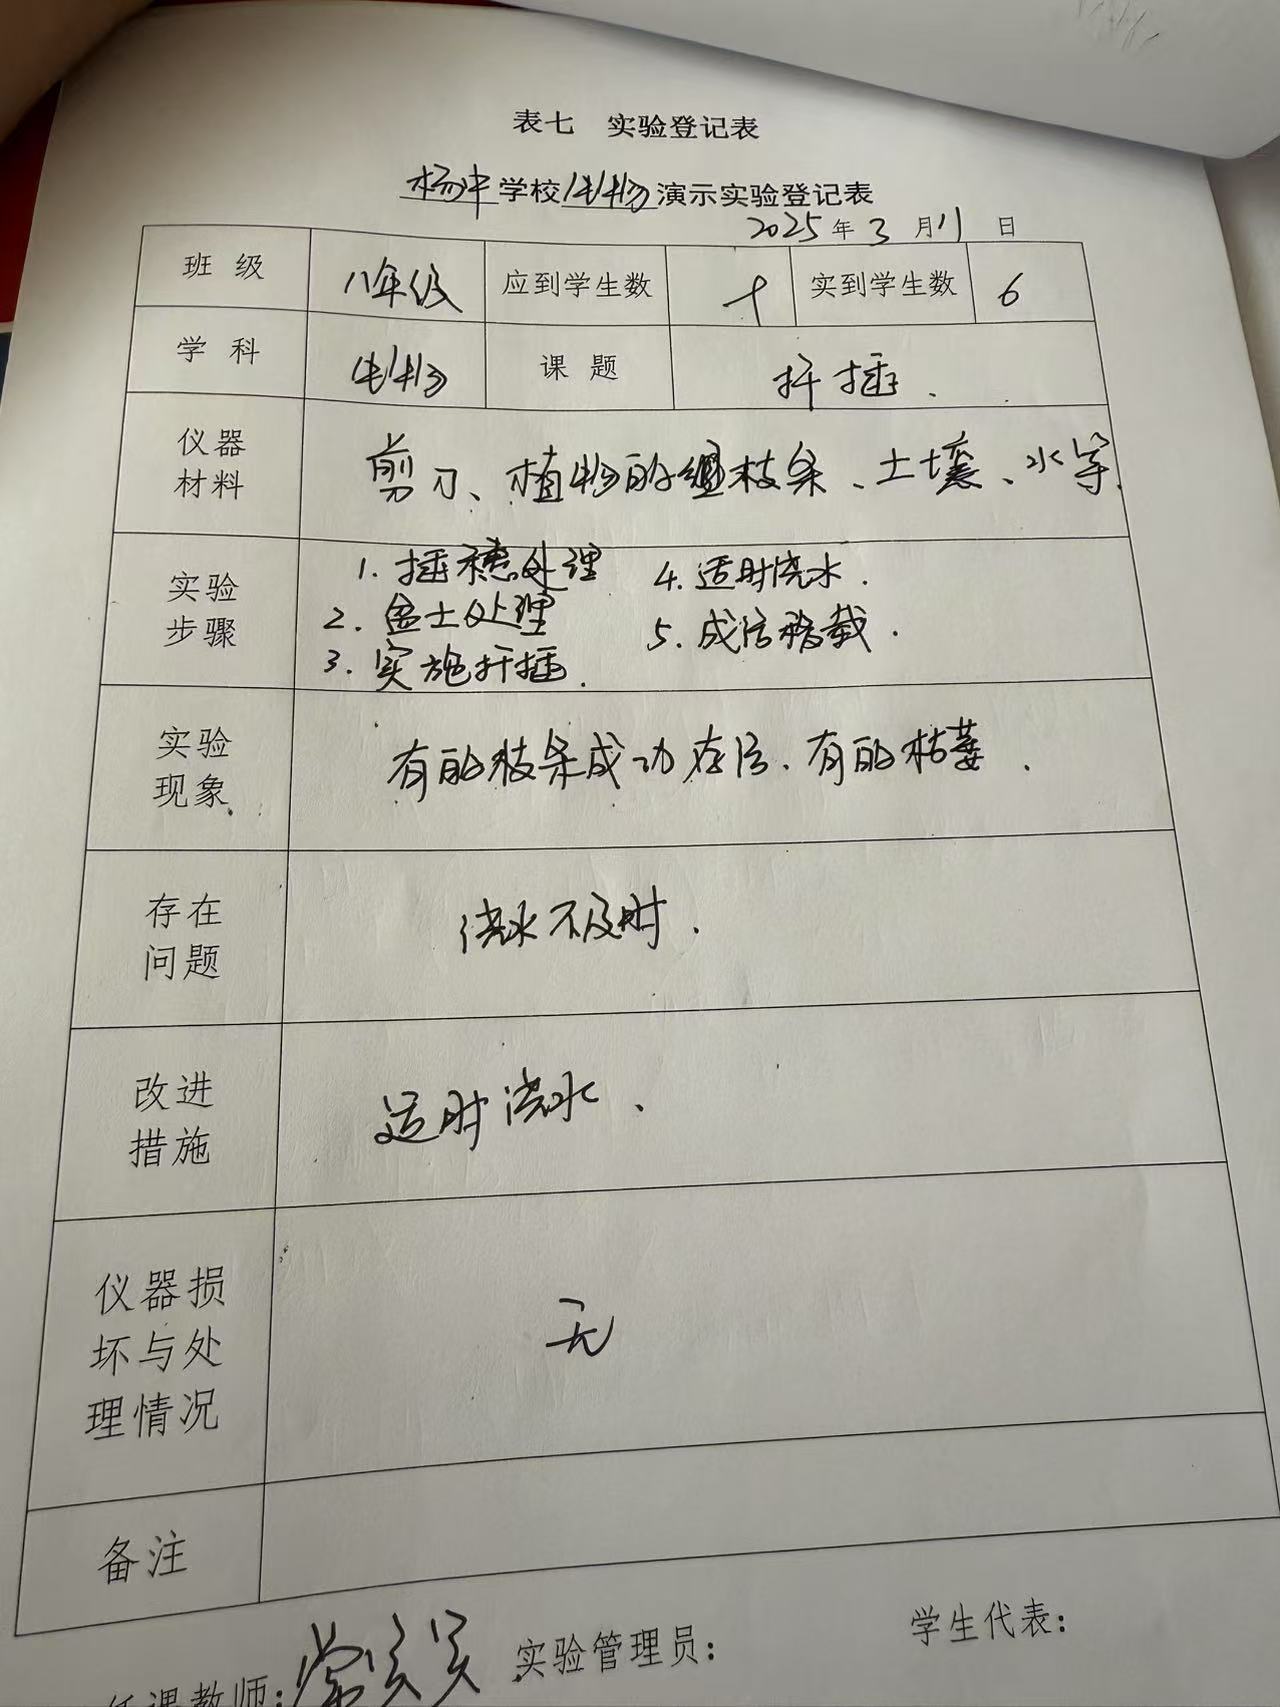 表七 实验登记表
杨中学校生物演示实验登记表
2025年3月11日
班级 八年级 应到学生数 实到学生数 6
学科 生物 课题 扦插.
仪器材料 剪刀、植物的枝条、土壤、水等.
实验步骤 1.插穗处理 4.适时浇水.
2.盆土处理 5.成活移栽.
3.实施扦插.
实验现象 有的枝条成功存活.有的枯萎.
存在问题 浇水不及时.
改进措施 适时浇水.
仪器损坏与处理情况 无
备注
任课教师: 实验管理员: 学生代表: